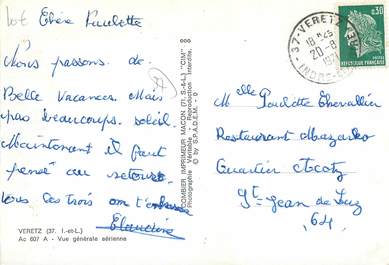 Chère Paulette
Nous passons de
Belle Vacances. Mais
pas beaucoups. soleil
Maintenant il faut
pensé au retour,
tous les trois on t'embrasse
Claudine
VERETZ (37. I.-et-L.)
Ac 607 A - Vue générale aérienne
COMBIER IMPRIMEUR MACON (71. S.-&-L.) "CIM"
Photographie Véritable - Reproduction Interdite.
© by S.P.A.D.E.M. - 0
37 - VERETZ
18 H 45
20 - 8
INDRE-ET-
0,30
REPUBLIQUE FRANÇAISE
Melle Paulette Chevallier
Restaurant
Quartier
St Jean de Luz
64